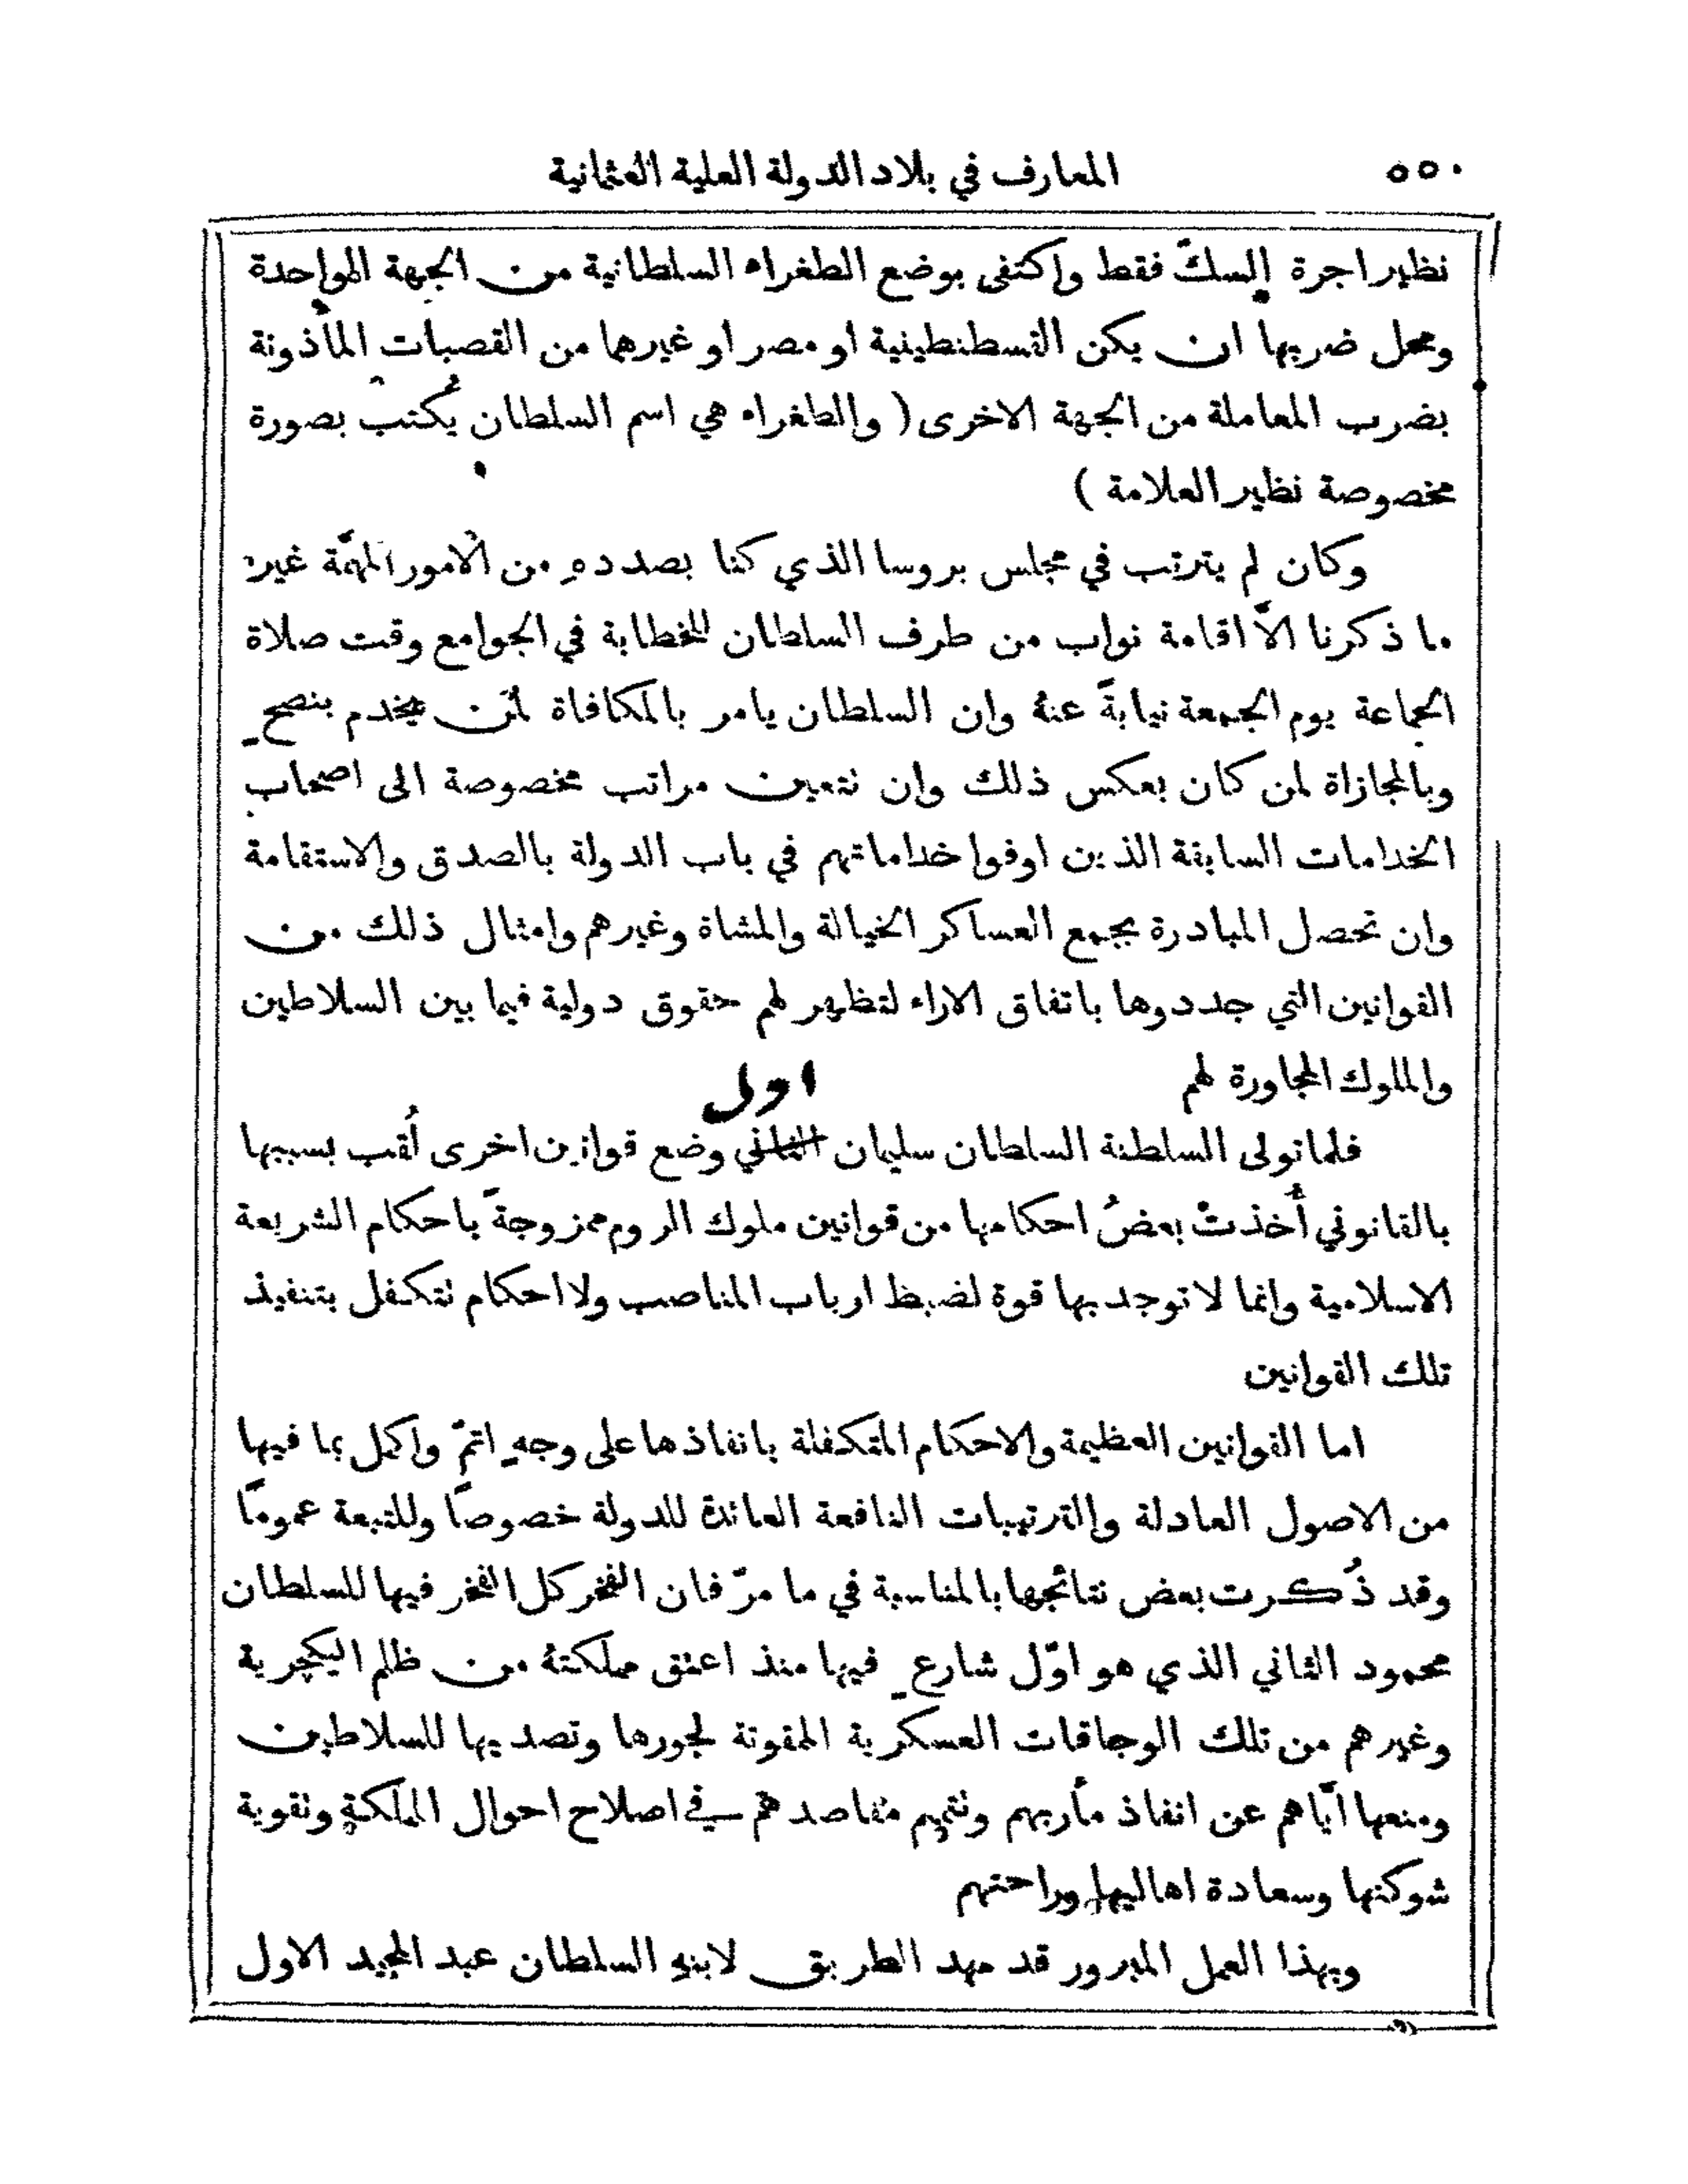 ٥٥٠ المعارف في بلاد الدولة العلية العثمانية
نظير اجرة السكّ فقط واكتفى بوضع الطغراء السلطانية من الجهة الواحدة
ومحل ضربها ان يكن القسطنطينية او مصر او غيرهما من القصبات الماذونة
بضرب المعاملة من الجهة الاخرى ( والطغراء هي اسم السلطان يُكتب بصورة
مخصوصة نظير العلامة )
وكان لم يترتب في مجلس بروسا الذي كنا بصدده من الامور المهمَّة غير
ما ذكرنا الَّا اقامة نواب من طرف السلطان للخطابة في الجوامع وقت صلاة
الجماعة يوم الجمعة نيابةً عنهُ وان السلطان يامر بالمكافاة لمَن يخدم بنصحٍ
وبالمجازاة لمن كان بعكس ذلك وان نتعين مراتب مخصوصة الى اصحاب
الخدامات السابقة الذين اوفوا خداماتهم في باب الدولة بالصدق والاستقامة
وان تحصل المبادرة بجمع العساكر الخيالة والمشاة وغيرهم وامثال ذلك من
القوانين التي جددوها باتفاق الاراء لتظهر لهم حقوق دولية فيما بين السلاطين
والملوك المجاورة لهم
اول
فلما تولى السلطنة السلطان سليمان الثاني وضع قوانين اخرى لُقب بسببها
بالقانوني أُخذتْ بعضُ احكامها من قوانين ملوك الروم ممزوجةً باحكام الشريعة
الاسلامية وانما لا توجد بها قوة لضبط ارباب المناصب ولا احكام نتكفل بتنفيذ
تلك القوانين
اما القوانين العظيمة والاحكام المتكفلة بانفاذها على وجهٍ اتمّ واكمل بما فيها
من الاصول العادلة والترتيبات النافعة العائدة للدولة خصوصًا وللتبعة عمومًا
وقد ذُكرت بعض نتائجها بالمناسبة في ما مرّ فان الفخر كل الفخر فيها للسلطان
محمود الثاني الذي هو اوّل شارعٍ فيها منذ اعتق مملكتهُ من ظلم اليكچرية
وغيرهم من تلك الوجاقات العسكرية الممقوتة لجورها وتصديها للسلاطين
ومنعها ايَّاهم عن انفاذ مأربهم ونتميم مقاصدهم في اصلاح احوال المملكة ونقوية
شوكتها وسعادة اهاليها وراحتهم
وبهذا العمل المبرور قد مهد الطريق لابنهِ السلطان عبد المجيد الاول